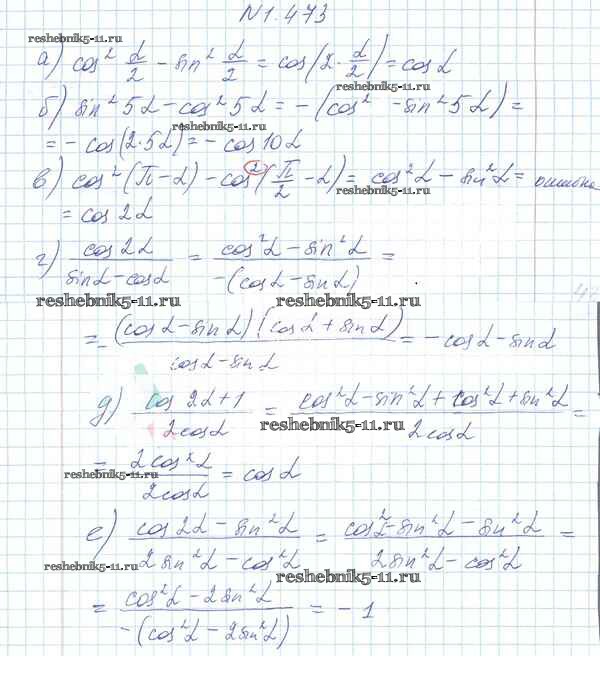 N 1.473
reshebnik5-11.ru
а) cos² α/2 - sin² α/2 = cos(2·α/2) = cos α
б) sin² 5α - cos² 5α = -(cos² - sin² 5α) =
reshebnik5-11.ru
= - cos(2·5α) = - cos 10α
в) cos²(π-α) - cos²(π/2 - α) = cos² α - sin² α = ошибка
reshebnik5-11.ru
= cos 2α
г) cos 2α / (sin α - cos α) = (cos² α - sin² α) / -(cos α - sin α) =
reshebnik5-11.ru reshebnik5-11.ru
= - (cos α - sin α)(cos α + sin α) / (cos α - sin α) = - cos α - sin α
д) (cos 2α + 1) / 2 cos α = (cos² α - sin² α + cos² α + sin² α) / 2 cos α =
reshebnik5-11.ru
= 2 cos² α / 2 cos α = cos α
reshebnik5-11.ru
е) (cos 2α - sin² α) / (2 sin² α - cos² α) = (cos² α - sin² α - sin² α) / (2 sin² α - cos² α) =
reshebnik5-11.ru reshebnik5-11.ru
= (cos² α - 2 sin² α) / -(cos² α - 2 sin² α) = - 1